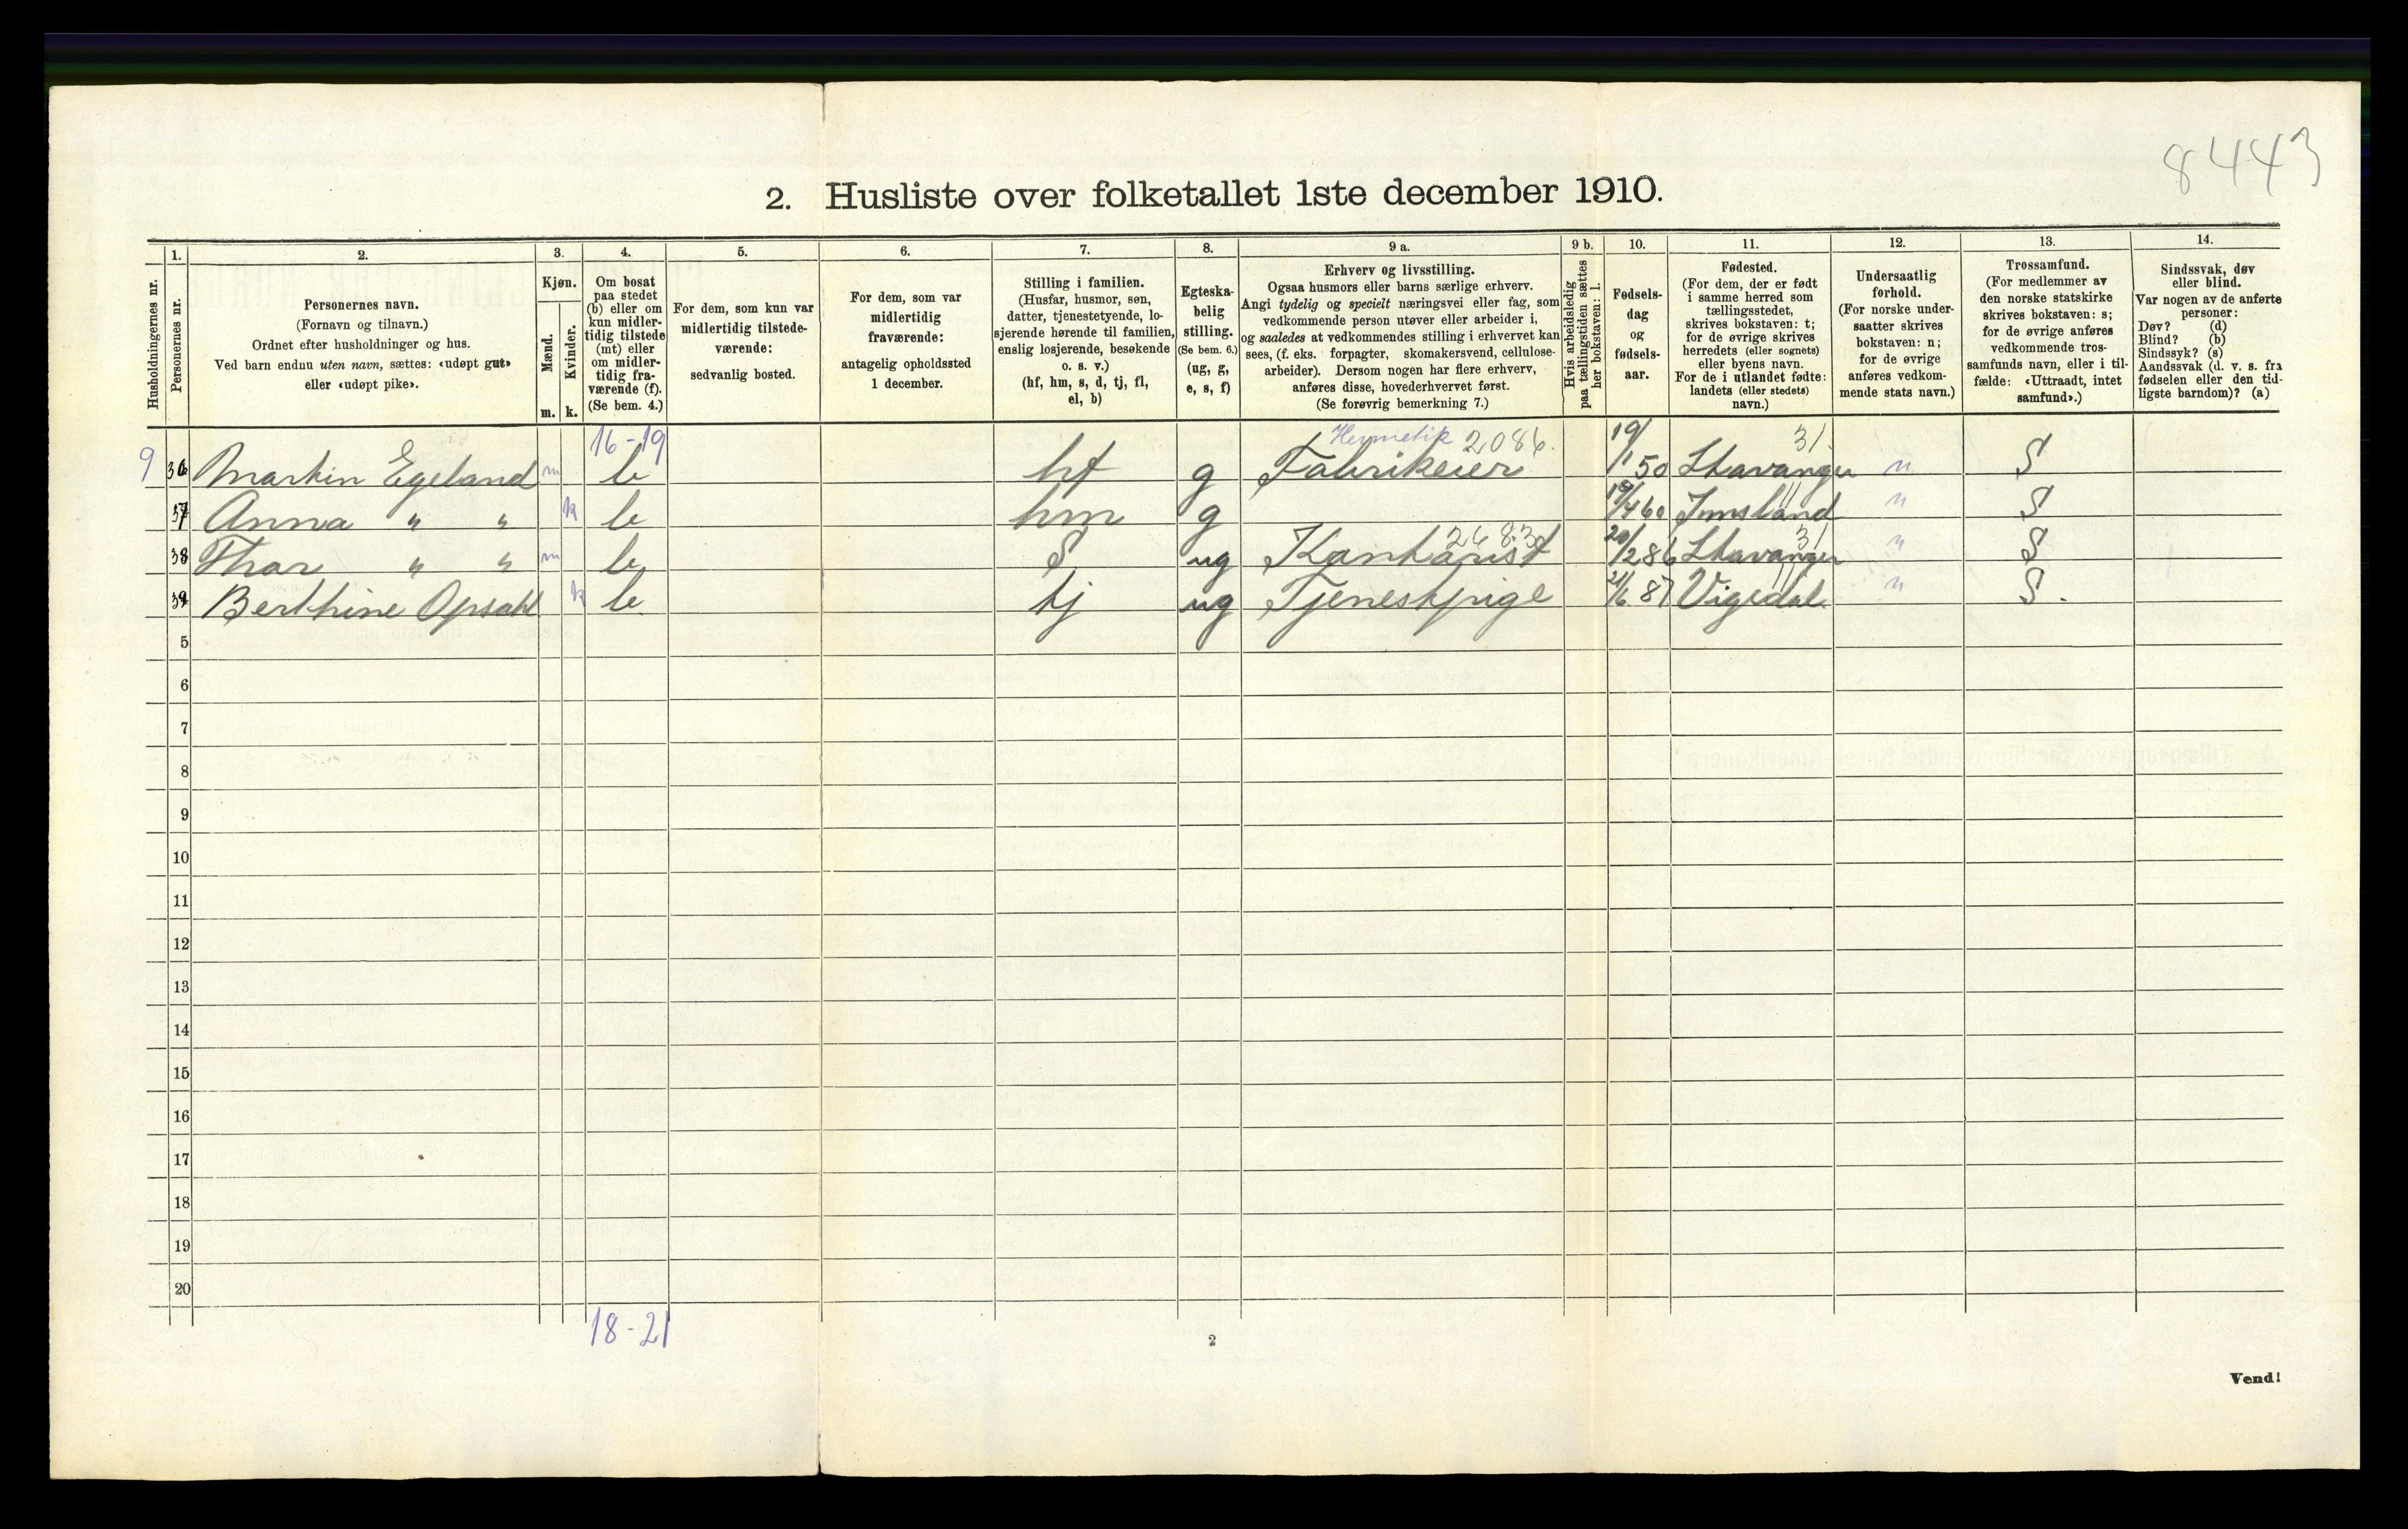 8443
2. Husliste over folketallet 1ste december 1910.
Husholdningernes nr.
1.
Personernes nr.
2.
Personernes navn.
(Fornavn og tilnavn.)
Ordnet efter husholdninger og hus.
Ved barn endnu uten navn, sættes: «udøpt gut»
eller «udøpt pike».
3.
Kjøn.
Mænd.
Kvinder.
m. k.
4.
Om bosat
paa stedet
(b) eller om
kun midler-
tidig tilstede
(mt) eller
om midler-
tidig fra-
værende (f).
(Se bem. 4.)
5.
For dem, som kun var
midlertidig tilstede-
værende:
sedvanlig bosted.
6.
For dem, som var
midlertidig
fraværende:
antagelig opholdssted
1 december.
7.
Stilling i familien.
(Husfar, husmor, søn,
datter, tjenestetyende, lo-
sjerende hørende til familien,
enslig losjerende, besøkende
o. s. v.)
(hf, hm, s, d, tj, fl,
el, b)
8.
Egteska-
belig
stilling.
(Se bem. 6.)
(ug, g,
e, s, f)
9 a.
Erhverv og livsstilling.
Ogsaa husmors eller barns særlige erhverv.
Angi tydelig og specielt næringsvei eller fag, som
vedkommende person utøver eller arbeider i,
og saaledes at vedkommendes stilling i erhvervet kan
sees, (f. eks. forpagter, skomakersvend, cellulose-
arbeider). Dersom nogen har flere erhverv,
anføres disse, hovederhvervet først.
(Se forøvrig bemerkning 7.)
9 b.
Hvis arbeidsledig
paa tællingstiden sættes
her bokstaven: l.
10.
Fødsels-
dag
og
fødsels-
aar.
11.
Fødested.
(For dem, der er født
i samme herred som
tællingsstedet,
skrives bokstaven: t;
for de øvrige skrives
herredets (eller sognets)
eller byens navn.
For de i utlandet fødte:
landets (eller stedets)
navn.)
12.
Undersaatlig
forhold.
(For norske under-
saatter skrives
bokstaven: n;
for de øvrige
anføres vedkom-
mende stats navn.)
13.
Trossamfund.
(For medlemmer av
den norske statskirke
skrives bokstaven: s;
for de øvrige anføres
vedkommende tros-
samfunds navn, eller i til-
fælde: «Uttraadt, intet
samfund».)
14.
Sindssvak, døv
eller blind.
Var nogen av de anførte
personer:
Døv? (d)
Blind? (b)
Sindssyk? (s)
Aandssvak (d. v. s. fra
fødselen eller den tid-
ligste barndom)? (a)
16-19 Hermetik 2086. 31.
9 36 Martin Egeland m b hf g Fabrikeier 19/1 50 Stavanger n S
37 Anna " " k b hm g 19/4 60 Imsland n S
2683 31
38 Thor " " m b S ug Kontorist 20/2 86 Stavanger n S
39 Berthine Opsahl k b tj ug Tjenestpige 21/6 87 Vigedal n S.
5
6
7
8
9
10
11
12
13
14
15
16
17
18
19
20
18-21
2
Vend!